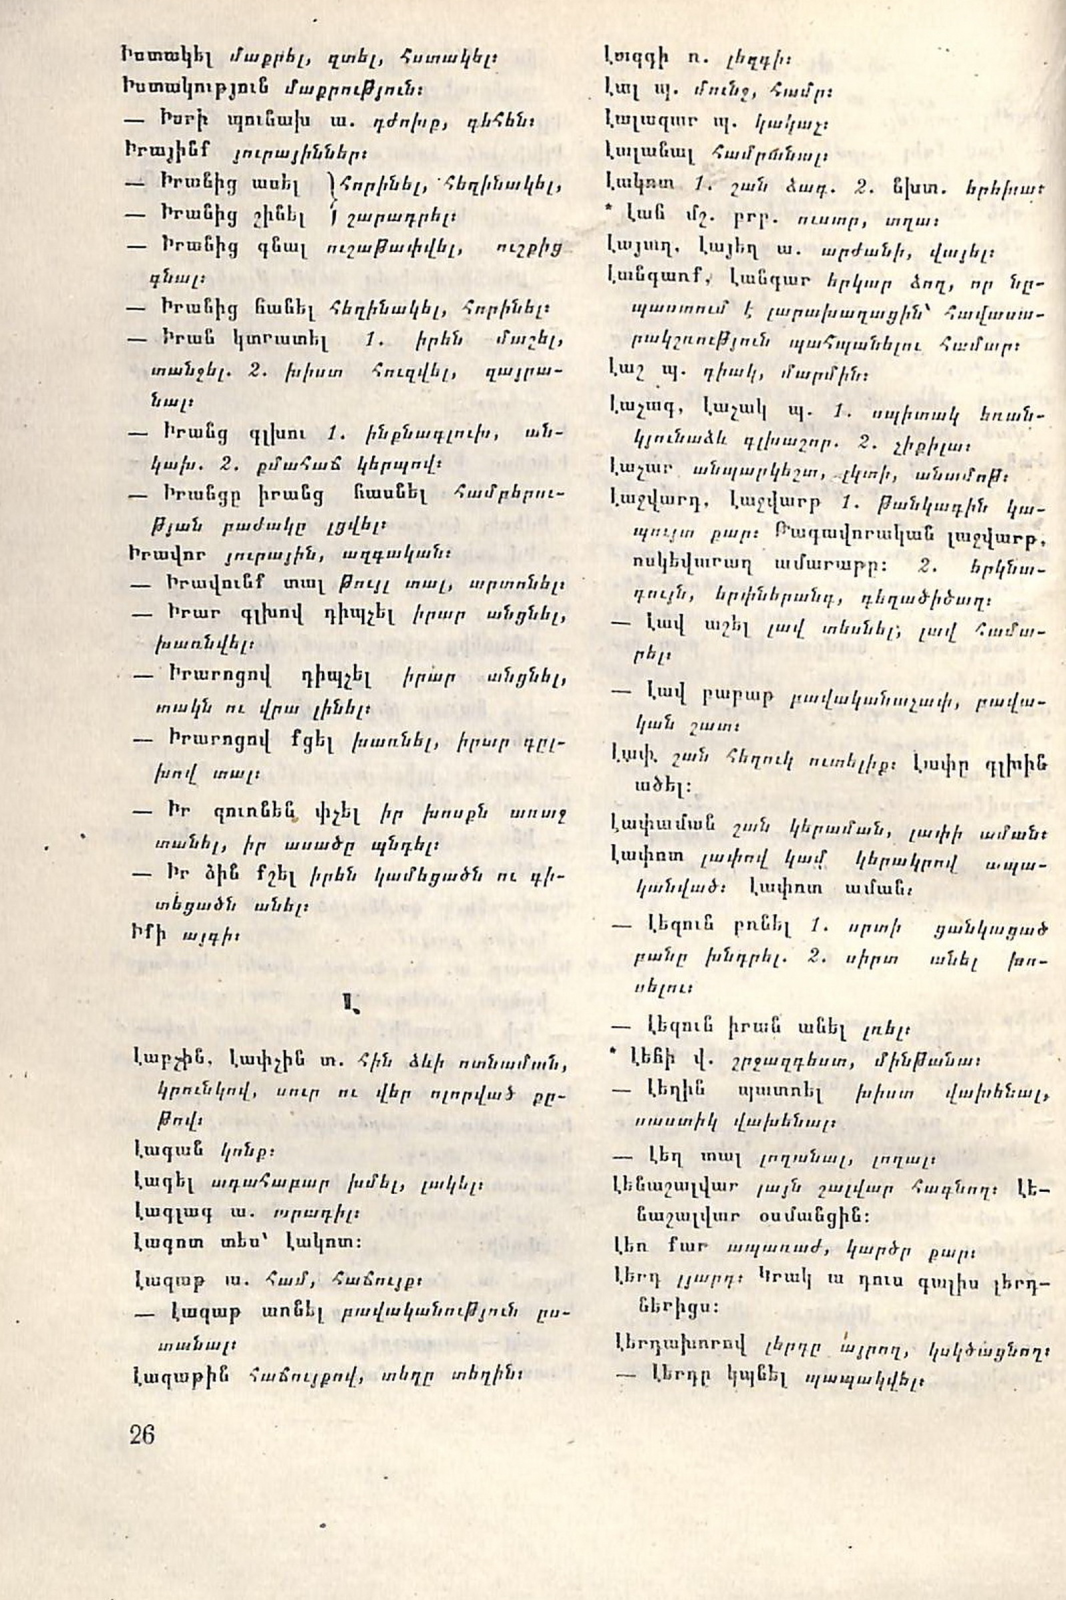 Իստակել մաքրել, զտել, հստակել:
Իստակություն մաքրություն:
— Իսրի պունախ ա. դժոխք, գեհեն:
Իրայինք յուրայիններ:
— Իրանից ասել } հորինել, հեղինակել,
— Իրանից շինել } շարադրել:
— Իրանից գնալ ուշաթափվել, ուշքից
գնալ:
— Իրանից հանել հեղինակել, հորինել:
— Իրան կտրատել 1. իրեն մաշել,
տանջել. 2. խիստ հուզվել, զայրա-
նալ:
— Իրանց գլխու 1. ինքնագլուխ, ան-
կախ. 2. քմահաճ կերպով:
— Իրանցը իրանց հասնել համբերու-
թյան բաժակը լցվել:
Իրավոր յուրային, ազգական:
— Իրավունք տալ թույլ տալ, արտոնել:
— Իրար գլխով դիպչել իրար անցնել,
խառնվել:
— Իրարոցով դիպչել իրար անցնել,
տակն ու վրա լինել:
— Իրարոցով քցել խառնել, իրար գըլ-
խով տալ:
— Իր զուռնեն փչել իր խոսքն առաջ
տանել, իր ասածը պնդել:
— Իր ձին քշել իրեն կամեցածն ու գի-
տեցածն անել:
Իքի այգի:
Լ
Լաբչին, Լափչին տ. հին ձևի ոտնաման,
կրունկով, սուր ու վեր ոլորված քը-
թով:
Լագան կոնք:
Լագել ագահաբար խմել, լակել:
Լագլագ ա. արագիլ:
Լագոտ տես՝ Լակոտ:
Լազաթ ա. համ, հաճույք:
— Լազաթ առնել բավականություն ըս-
տանալ:
Լազաթին հաճույքով, տեղը տեղին:
Լազգի ռ. լեզգի:
Լալ պ. մունջ, համր:
Լալազար պ. կակաչ:
Լալանալ համրանալ:
Լակոտ 1. շան ձագ. 2. նխտ. երեխա:
* Լան մշ. բրբ. ուստր, տղա:
Լայաղ, Լայեղ ա. արժանի, վայել:
Լանգառք, Լանգար երկար ձող, որ նը-
պաստում է լարախաղացին՝ հավասա-
րակշռություն պահպանելու համար:
Լաշ պ. դիակ, մարմին:
Լաչագ, Լաչակ պ. 1. սպիտակ եռան-
կյունաձև գլխաշոր. 2. չիքիլա:
Լաչառ անպարկեշտ, լկտի, անամոթ:
Լաջվարդ, Լաջվարթ 1. թանկագին կա-
պույտ քար: Թագավորական լաջվարթ,
ոսկեվարաղ ամարաթը: 2. երկնա-
գույն, երփներանգ, գեղածիծաղ:
— Լավ աշել լավ տեսնել, լավ համա-
րել:
— Լավ բաբաթ բավականաչափ, բավա-
կան շատ:
Լափ շան հեղուկ ուտելիք: Լափը գլխին
ածել:
Լափաման շան կերաման, լափի աման:
Լափոտ լափով կամ կերակրով ապա-
կանված: Լափոտ աման:
— Լեզուն բռնել 1. սրտի ցանկացած
բանը խնդրել. 2. սիրտ անել խո-
սելու:
— Լեզուն իրան անել լռել:
* Լենի վ. շրջազգեստ, մինթանա:
— Լեղին պատռել խիստ վախենալ,
սաստիկ վախենալ:
— Լեղ տալ լողանալ, լողալ:
Լենաշալվար լայն շալվար հագնող: Լե-
նաշալվար օսմանցին:
Լեռ քար ապառաժ, կարծր քար:
Լերդ լյարդ: Կրակ ա դուս գալիս լերդ-
ներիցս:
Լերդախորով լերդը այրող, կսկծացնող:
— Լերդը կպնել պապակվել:
26